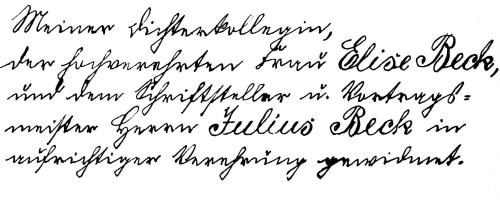 Meiner Dichterkollegin,
der hochverehrten Frau Elise Beck,
und dem Schriftsteller u. Vortrags-
meister Herrn Julius Beck in
aufrichtiger Verehrung gewidmet.